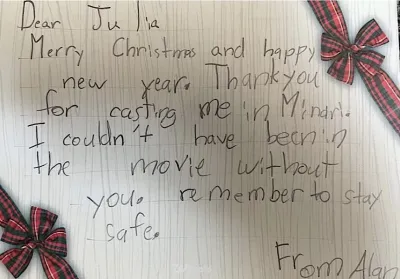 Dear Julia
Merry Christmas and happy
new year. Thank you
for casting me in Minari.
I couldn't have been in
the movie without
you. remember to stay
safe.
From Alan